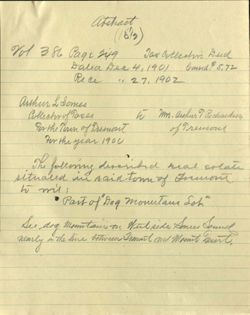 Abstract
Vol 386 Page 249 Tax Collectors Deed
Dated Dec 4, 1901 Consd $5.72
Rec " 27, 1902
Arthur L Somes
Collector of Taxes to Mr. Arthur T. Richardson
for the Town of Tremont of Tremont
For the year 1900
The following described real estate
situated in said town of Tremont
to wit:
"Part of "Dog Mountain Lot"
See dog Mountain on West side Somes Sound
nearly in the line between Tremont and Mount Desert.